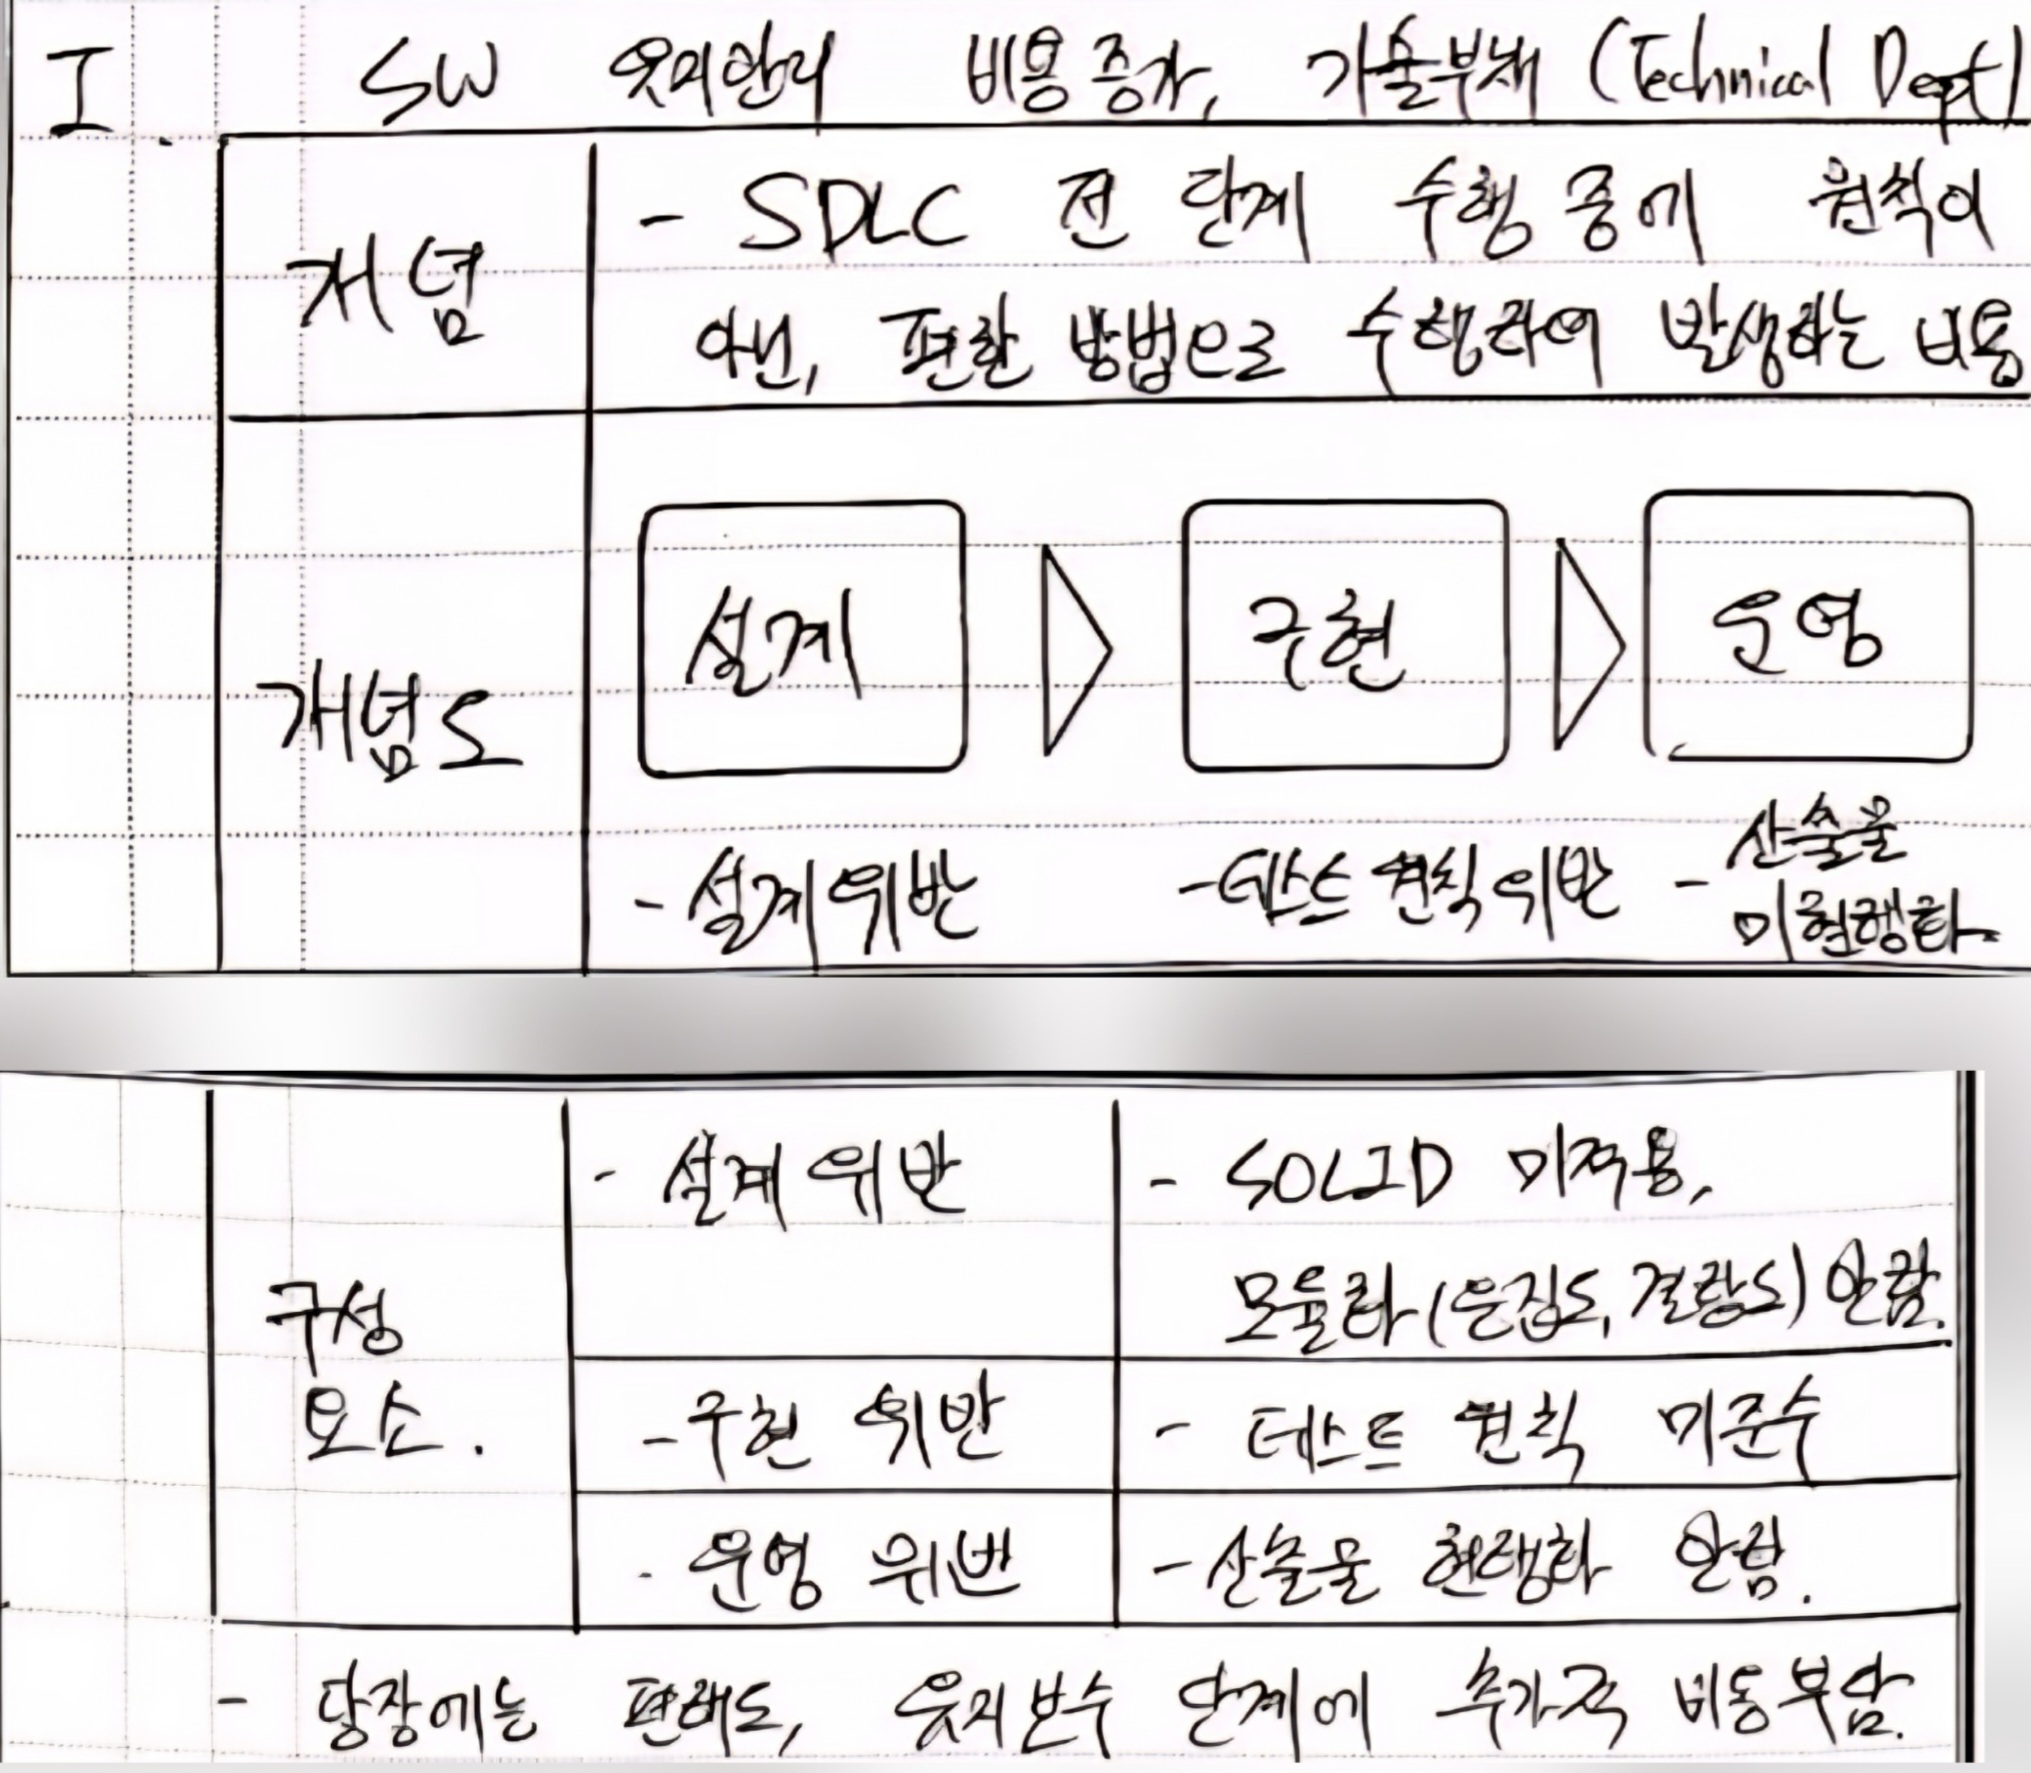 I. SW 유지관리 비용증가, 기술부채 (Technical Dept)
개념
- SDLC 전 단계 수행 중에 원칙이
아닌, 편한 방법으로 수행하여 발생하는 비용
개념도
설계 ▷ 구현 ▷ 운영
- 설계위반 - 테스트 원칙 위반 - 산출물
미현행화
구성
요소.
- 설계 위반 - SOLID 미적용,
모듈화(응집도, 결합도) 안함.
- 구현 위반 - 테스트 원칙 미준수
- 운영 위반 - 산출물 현행화 안함.
- 당장에는 편해도, 유지보수 단계에 추가적 비용부담.